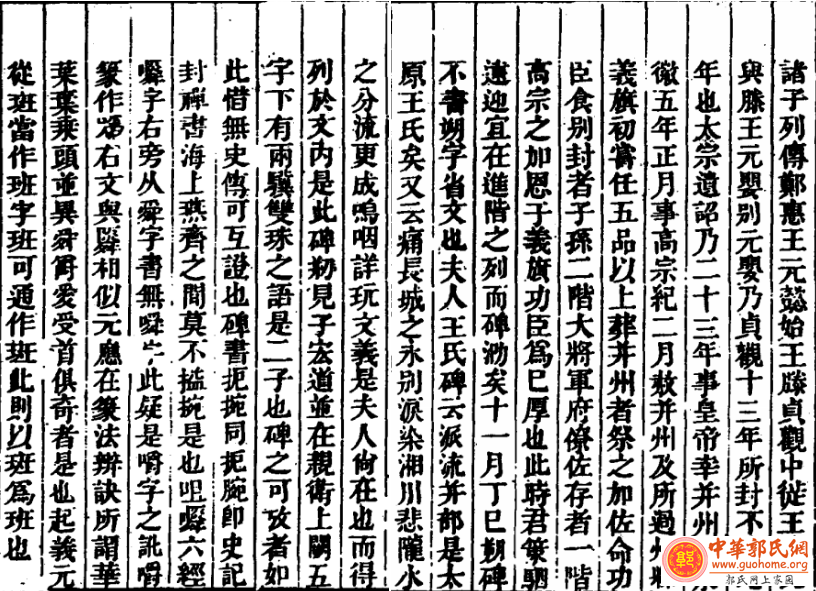 諸子列傳鄭惠王元懿始王滕貞觀中從王
與滕王元嬰别元嬰乃貞觀十三年所封不
年也太宗遺詔乃二十三年事皇帝幸并州
徽五年正月事高宗紀二月敕并州及所過州
義旗初嘗任五品以上葬并州者祭之加佐命功
臣食别封者子孫二階大將軍府僚佐存者一階
高宗之加恩于義旗功臣爲已厚也此時君策駟
遠迎宜在進階之列而碑泐矣十一月丁巳朔碑
不書朔字省文也夫人王氏碑云派流并部是太
原王氏矣又云痛長城之永别淚染湘川悲隴水
之分流更成鳴咽詳玩文義是夫人尙在也而得
列於文内是此碑剏見子宏道並在親衛上闕五
字下有兩驥雙珠之語是二子也碑之可攷者如
此惜無史傳可互證也碑書扼捥同扼腕卽史記
封禪書海上燕齊之間莫不搤捥是也咀㘔六經
㘔字右旁从舜字書無此疑是嚼字之訛嚼
篆作右文與相似元應在篆法辨訣所謂華
葉葉乘頭並異舜爵愛受首俱奇者是也起義元
從班當作班字班可通作班此則以班爲班也
中華郭氏網
www.guohome.org
郭氏网上家園